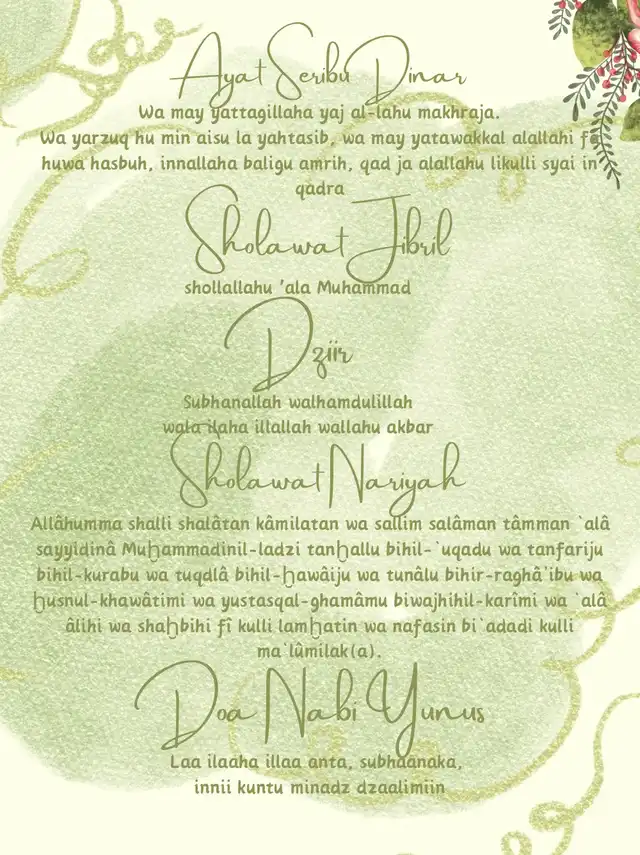 Ayat Seribu Dinar
Wa may yattagillaha yaj al-lahu makhraja.
Wa yarzuq hu min aisu la yahtasib, wa may yatawakkal alallahi fa
huwa hasbuh, innallaha baligu amrih, qad ja alallahu likulli syai in
qadra
Sholawat Jibril
shollallahu 'ala Muhammad
Dziir
Subhanallah walhamdulillah
wala ilaha illallah wallahu akbar
Sholawat Nariyah
Allâhumma shalli shalâtan kâmilatan wa sallim salâman tâmman `alâ
sayyidinâ Muḫammadinil-ladzi tanḫallu bihil-`uqadu wa tanfariju
bihil-kurabu wa tuqdlâ bihil-ḫawâiju wa tunâlu bihir-raghâ'ibu wa
ḫusnul-khawâtimi wa yustasqal-ghamâmu biwajhihil-karîmi wa `alâ
âlihi wa shaḫbihi fî kulli lamḫatin wa nafasin bi`adadi kulli
ma`lûmilak(a).
Doa Nabi Yunus
Laa ilaaha illaa anta, subhaanaka,
innii kuntu minadz dzaalimiin